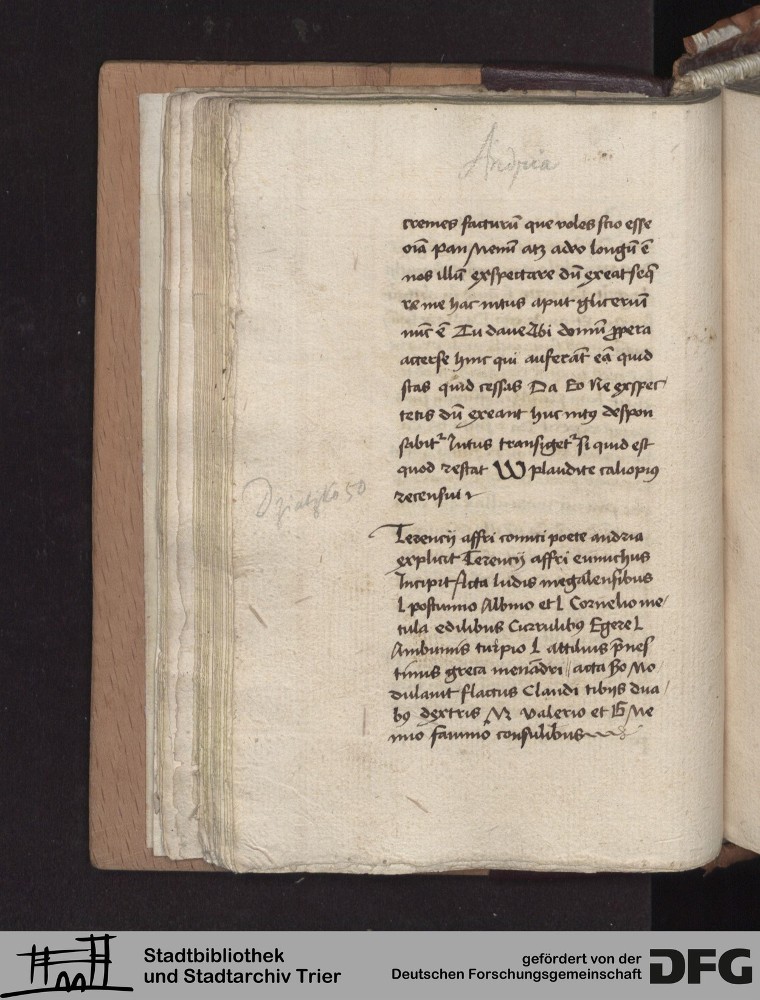 Andria
cremes facturū que voles scio esse
oīa pan Nemū atq adeo longū ē
nos illū exspectare dū exeat seq̄
re me hac intus aput gliceriū
nūc ē Tu dave Abi domū ꝓpera
accerse hinc qui auferāt eā quid
stas quid cessas Da Eo Ne exspec
tetis dū exeant huc intꝰ despon
sabit᷑ Intus transiget᷑ si quid est
quod restat W plaudite caliopiꝰ
recensui
Dziatzko 50
Terencij affri comici poete andria
explicit Terencij affri eunuchus
Incipit Acta ludis megalensibus
L postumio Albino et L Cornelio me
rula edilibus Currulibꝰ Egere L
Ambiuius turpio L attilius p̄nes
tinus greca menādri acta Mo
dulauit flactus Claudi tibijs dua
bꝰ dextris M valerio et Ne
mio fannio consulibus
Stadtbibliothek
und Stadtarchiv Trier
gefördert von der
Deutschen Forschungsgemeinschaft
DFG